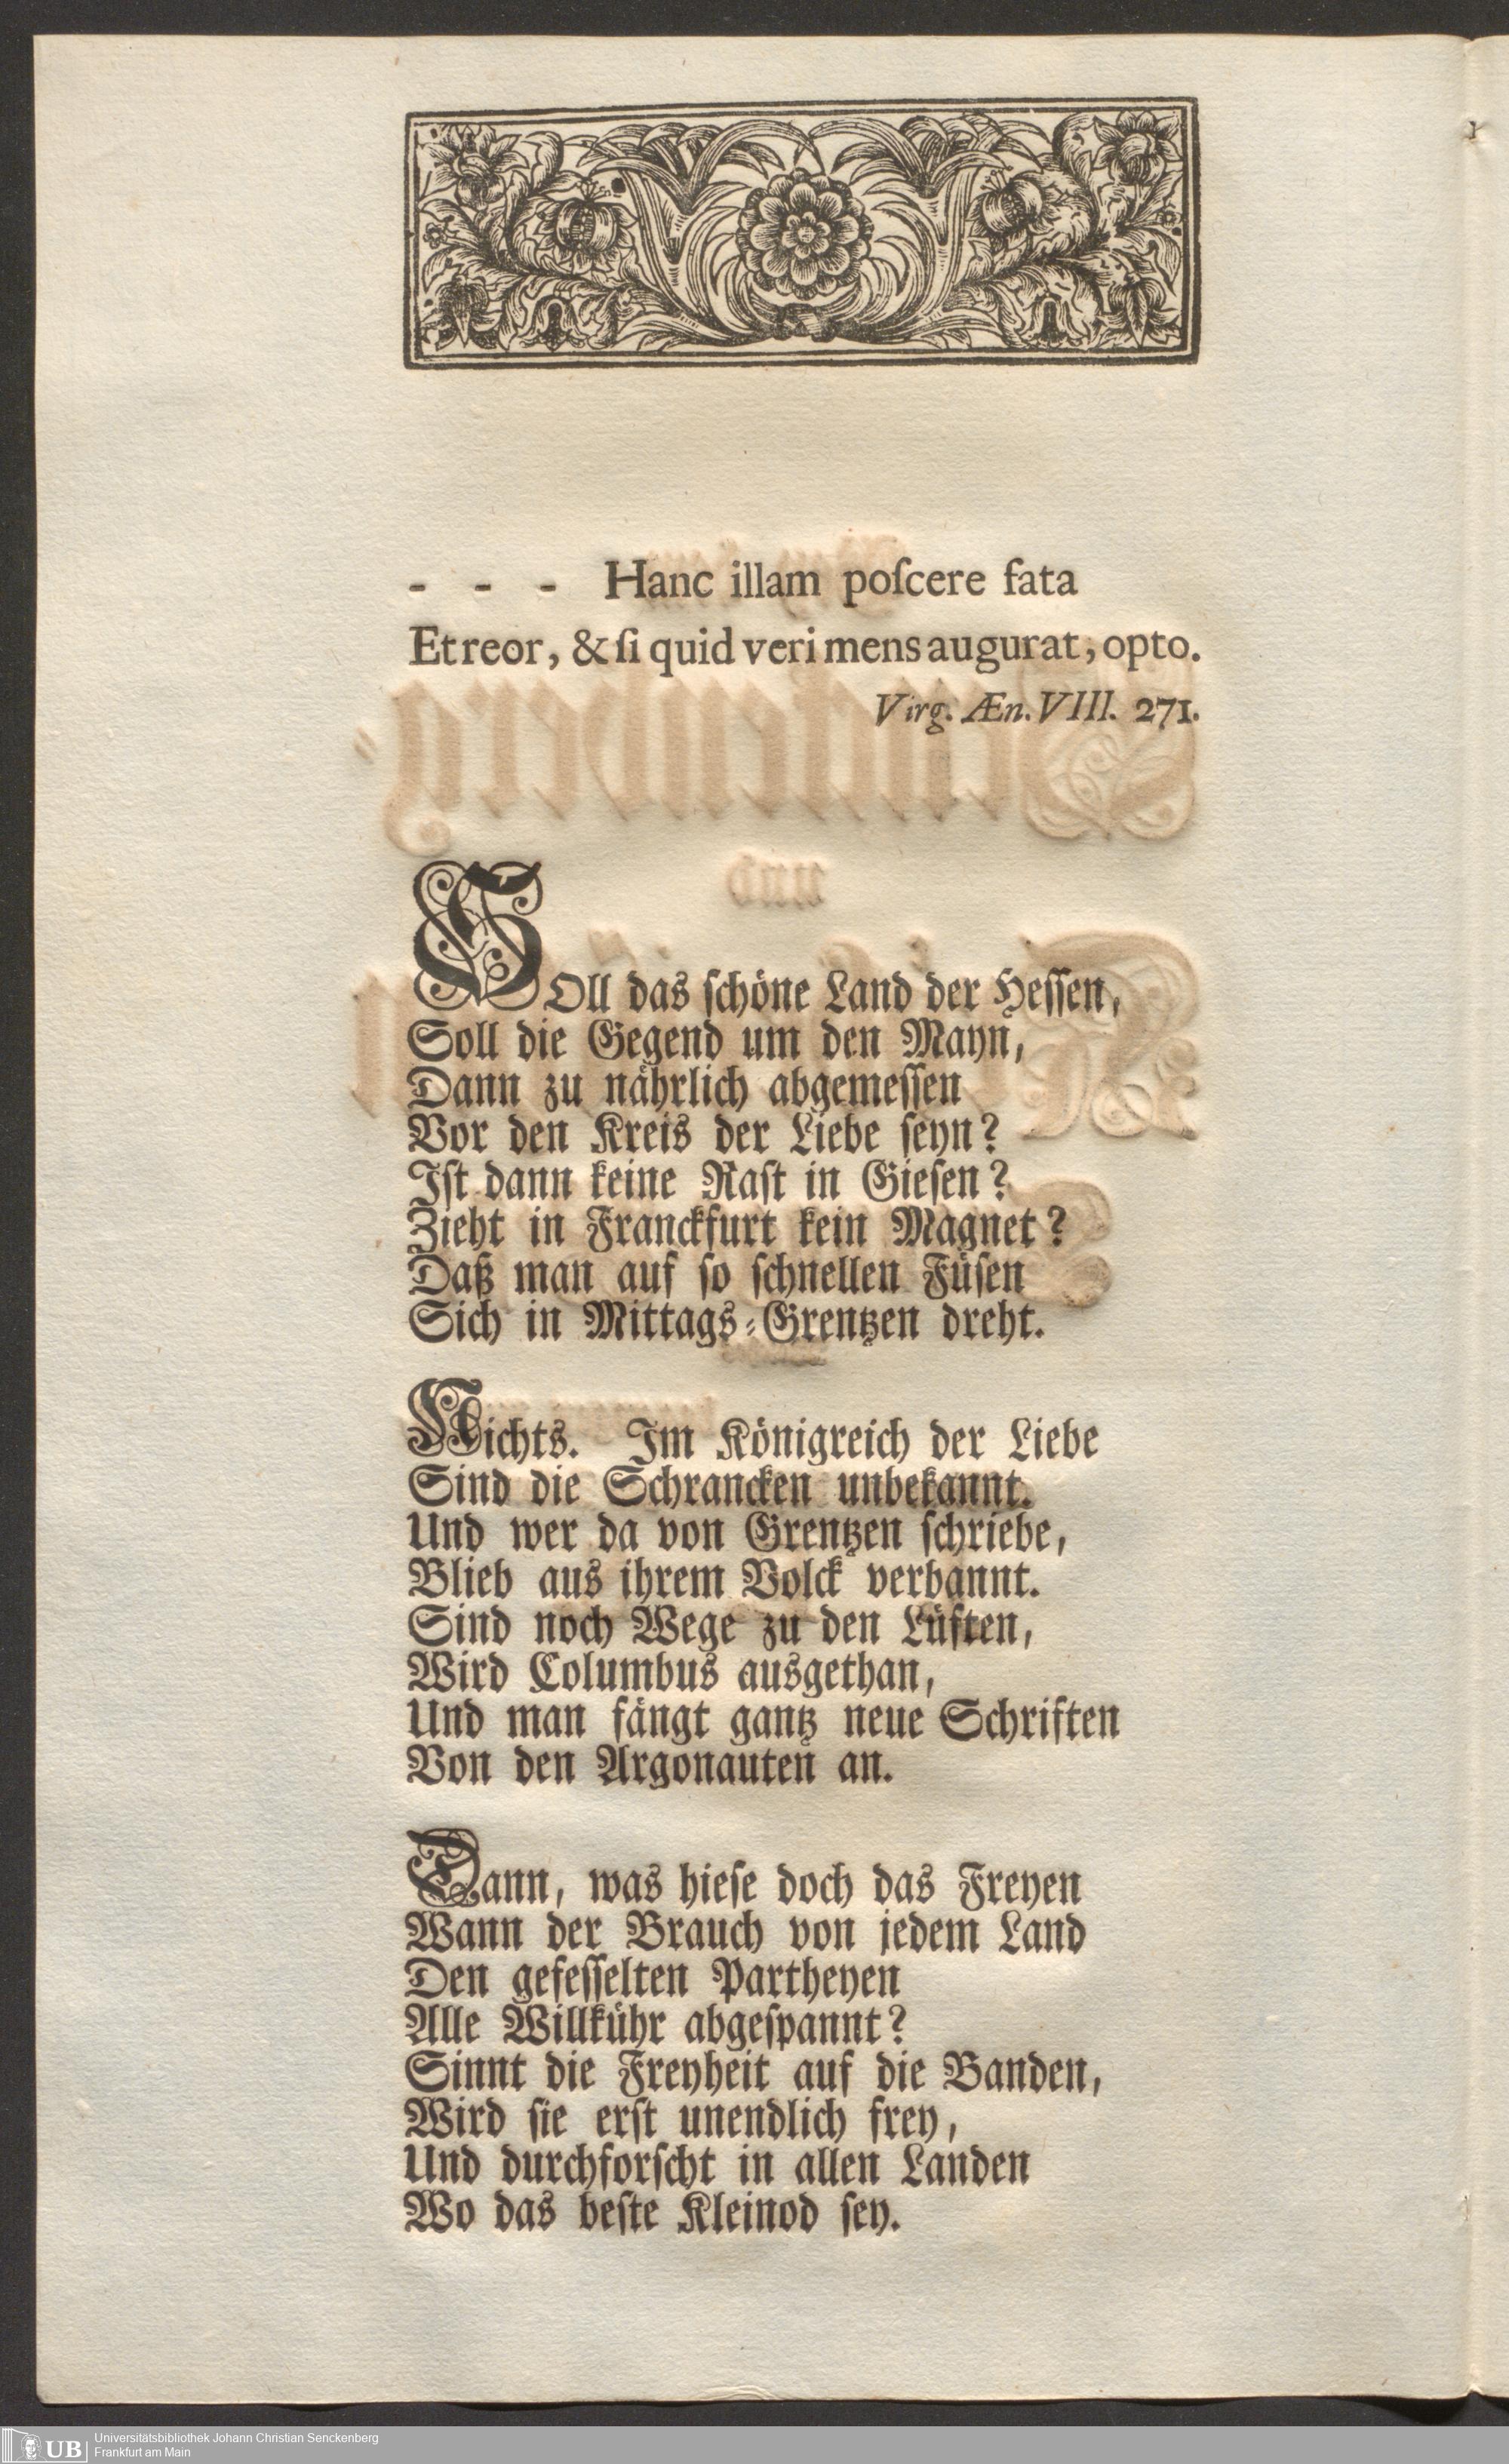 - - - Hanc illam poſcere fata
Et reor, & ſi quid veri mens augurat, opto.
Virg. Æn. VIII. 271.
SOll das ſchöne Land der Heſſen,
Soll die Gegend um den Mayn,
Dann zu nährlich abgemeſſen
Vor den Kreis der Liebe ſeyn?
Iſt dann keine Raſt in Gieſen?
Zieht in Franckfurt kein Magnet?
Daß man auf ſo ſchnellen Füſen
Sich in Mittags-Grentzen dreht.
Nichts. Im Königreich der Liebe
Sind die Schrancken unbekannt.
Und wer da von Grentzen ſchriebe,
Blieb aus ihrem Volck verbannt.
Sind noch Wege zu den Lüften,
Wird Columbus ausgethan,
Und man fängt gantz neue Schriften
Von den Argonauten an.
Dann, was hieſe doch das Freyen
Wann der Brauch von jedem Land
Den gefeſſelten Partheyen
Alle Willkühr abgeſpannt?
Sinnt die Freyheit auf die Banden,
Wird ſie erſt unendlich frey,
Und durchforſcht in allen Landen
Wo das beſte Kleinod ſey.
UB Universitätsbibliothek Johann Christian Senckenberg
Frankfurt am Main